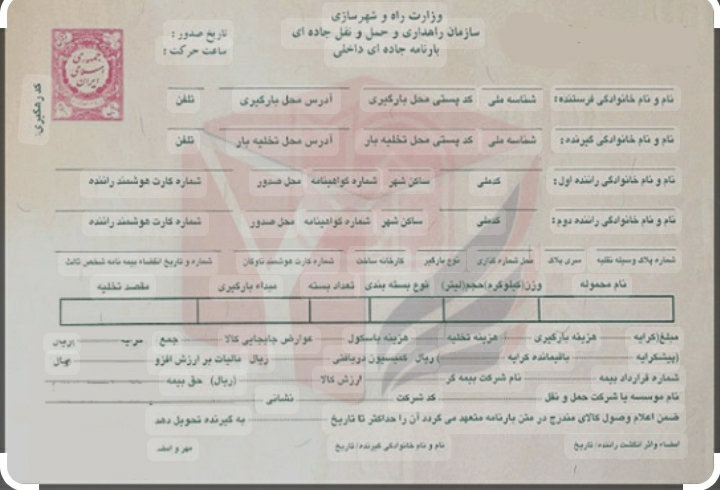 وزارت راه و شهرسازی
سازمان راهداری و حمل و نقل جاده ای
بارنامه جاده ای داخلی
تاریخ صدور :
ساعت حرکت :
جمهوری اسلامی ایران
کد رهگیری:
نام و نام خانوادگی فرستنده: شناسه ملی کد پستی محل بارگیری آدرس محل بارگیری تلفن
نام و نام خانوادگی گیرنده: شناسه ملی کد پستی محل تخلیه بار آدرس محل تخلیه بار تلفن
نام و نام خانوادگی راننده اول: کدملی ساکن شهر شماره گواهینامه محل صدور شماره کارت هوشمند راننده
نام و نام خانوادگی راننده دوم: کدملی ساکن شهر شماره گواهینامه محل صدور شماره کارت هوشمند راننده
شماره پلاک وسیله نقلیه سری پلاک محل شماره گذاری نوع بارگیر کارخانه ساخت شماره کارت هوشمند ناوگان شماره و تاریخ انقضاء بیمه نامه شخص ثالث
نام محموله وزن(کیلوگرم)حجم(لیتر) نوع بسته بندی تعداد بسته مبداء بارگیری مقصد تخلیه
مبلغ(کرایه هزینه بارگیری هزینه تخلیه هزینه باسکول عوارض جابجایی کالا جمع ریال
(پیشکرایه باقیمانده کرایه )ریال کمیسیون دریافتی ریال مالیات بر ارزش افزو ریال
شماره قرارداد بیمه نام شرکت بیمه گر ارزش کالا (ریال) حق بیمه
نام موسسه یا شرکت حمل و نقل کد شرکت نشانی
ضمن اعلام وصول کالای مندرج در متن بارنامه متعهد می گردد آن را حداکثر تا تاریخ به گیرنده تحویل دهد
امضاء واثر انگشت راننده/ تاریخ نام و نام خانوادگی گیرنده/ تاریخ مهر و امضـ